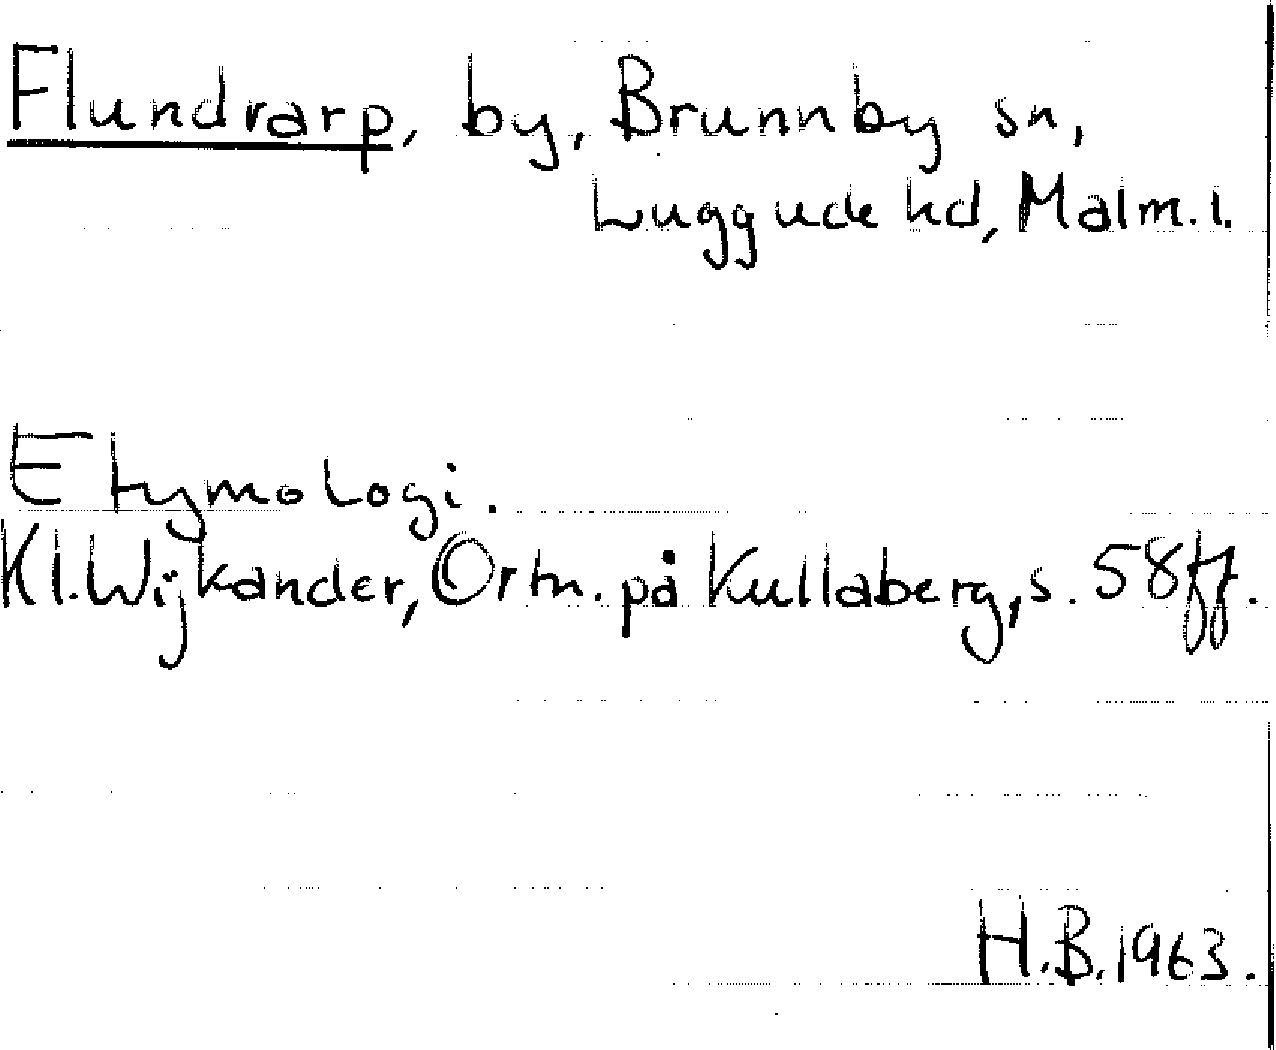 Flundrarp, by, Brunnby sn,
Luggude hd, Malm. l.
Etymologi.
Kl. Wijkander, Ortn. på Kullaberg, s. 58 ff.
H.B. 1963.